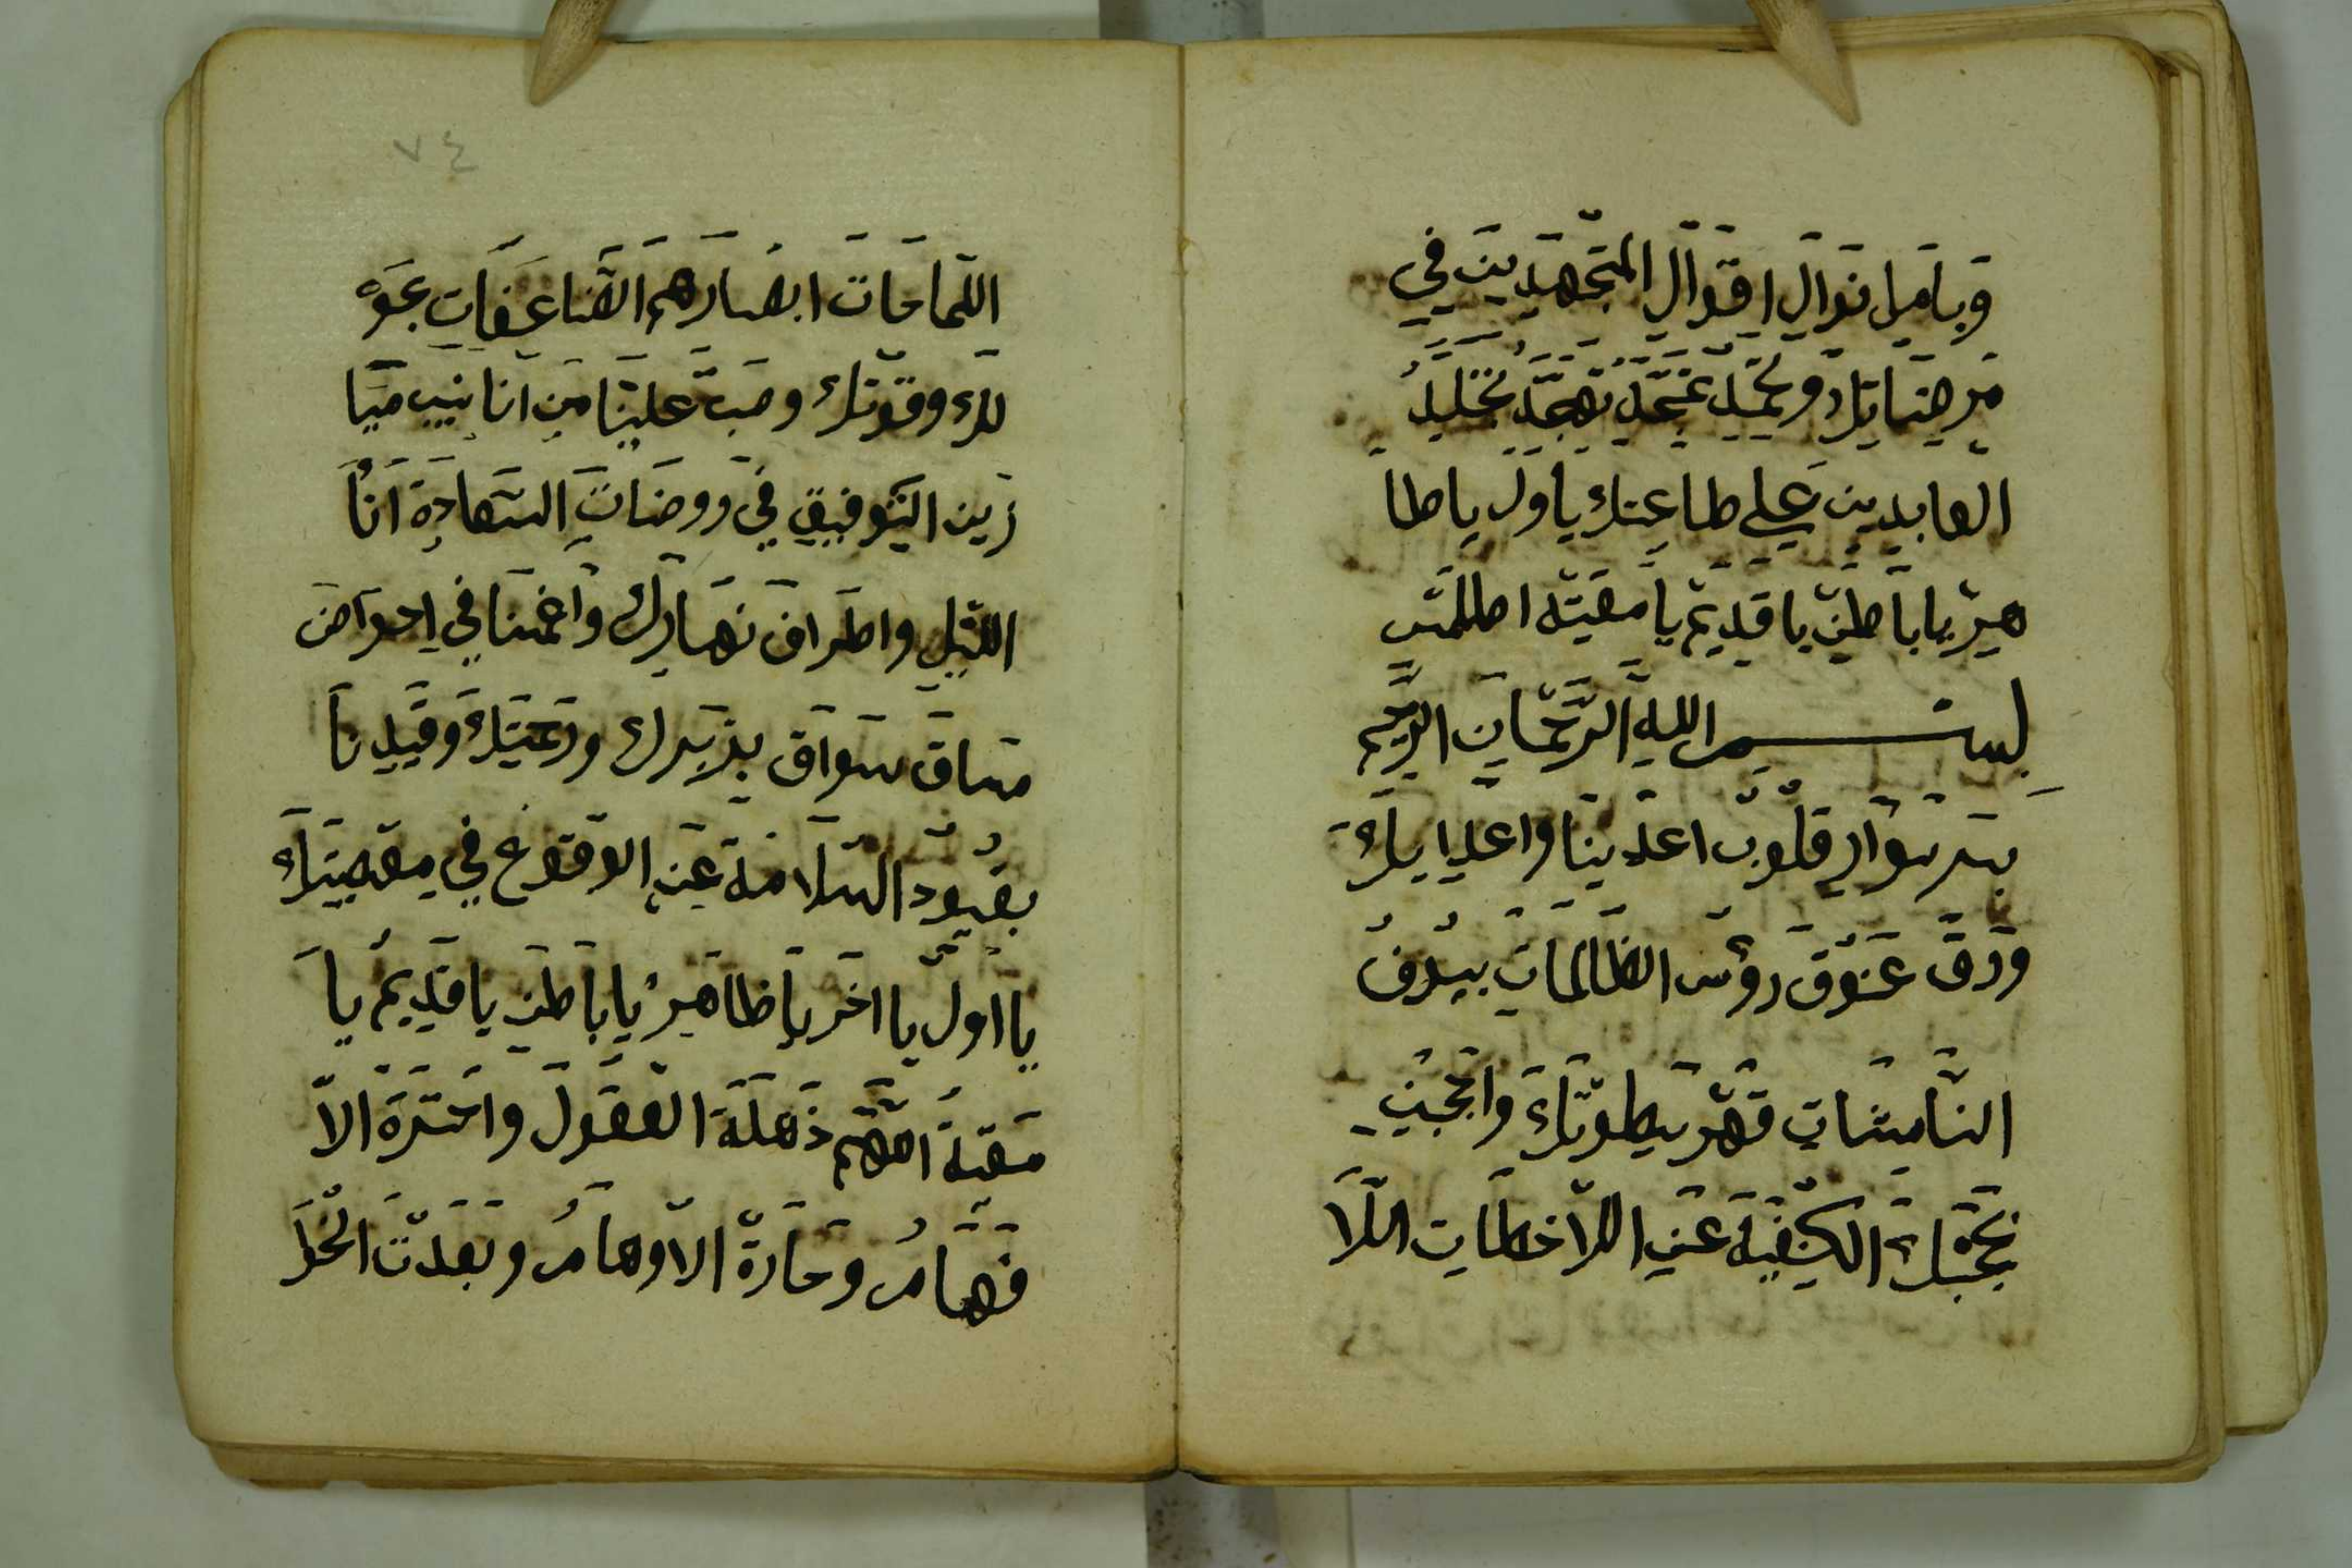 وباميل نوال اقوال المتجهدين في
مرضاتك وتحميد تمجد تهجد تخليد
العابدين علي طاعتك ياول ياظا
هر ياباطن ياقديم يامقيته اطلمس
بسم الله الرحمان الرحيم
بسر سواد قلوب اعدينا واعدايك
ودق عنوق رؤس الظالمات بسيوف
النامشات قهر سطوتك واحجبن
بحجبك الكثيفة عن اللاخطات اللا
٧٤
اللماحات ابصارهم الضاعفات بحو
لك وقوتك وصب علينا من انانيب ميا
زين التوفيق في روضات السعادة انا
الليل واطراف نهارك واغمسنا في احواض
مساق سواق بربرك ورحمتك وقيدنا
بقيود السلامة عن الوقوع في معصيتك
يا اول يااخر ياظاهر ياباطن ياقديم يا
مقيته اللهم ذهلة العقول وانحسرة الا
فهام وحارة الاوهام وبعدت الخوا